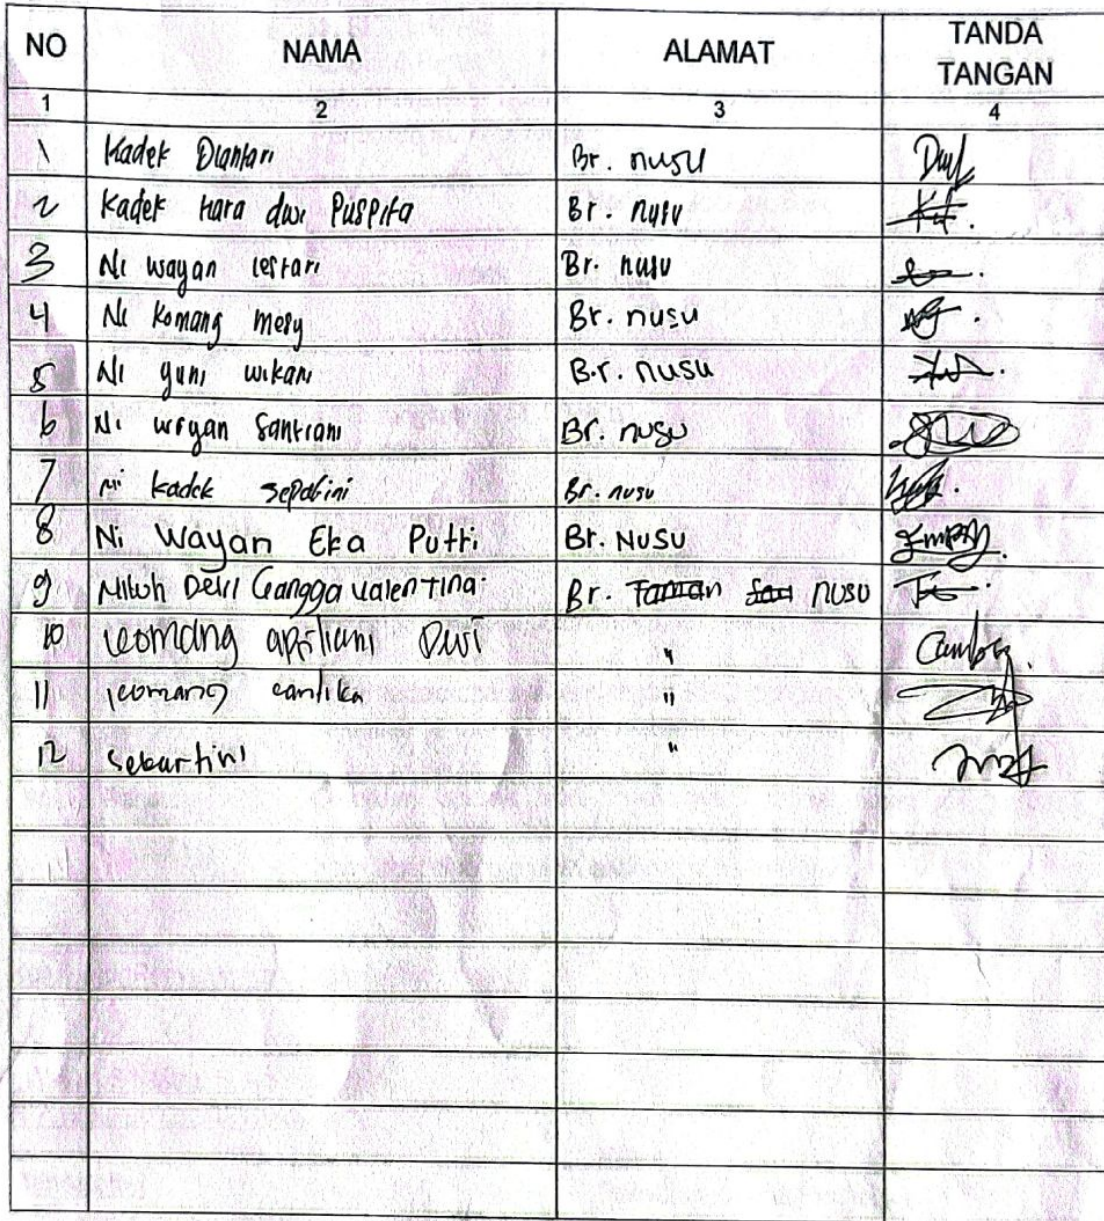 NO NAMA ALAMAT TANDA TANGAN
1 2 3 4
1 Kadek Diantari Br. nusu
2 Kadek Hara dwi Puspita Br. nusu
3 Ni wayan lestari Br. nusu
4 Ni Komang mesy Br. nusu
5 Ni yuni wikani Br. nusu
6 Ni wayan Santiani Br. nusu
7 ni kadek Br. nusu
8 Ni Wayan Eka Putri Br. NUSU
9 Niluh Dewi Gangga valentina Br. Taman Sari nusu
10 komang apriliani Dwi "
11 komang cantika "
12 "